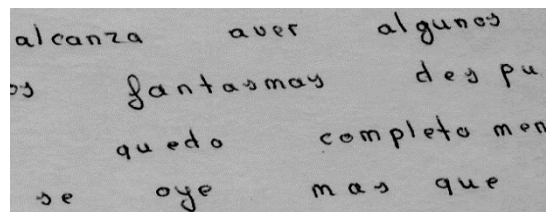 alcanza aver algunos
os fantasmas des pu
quedo completo men
se oye mas que